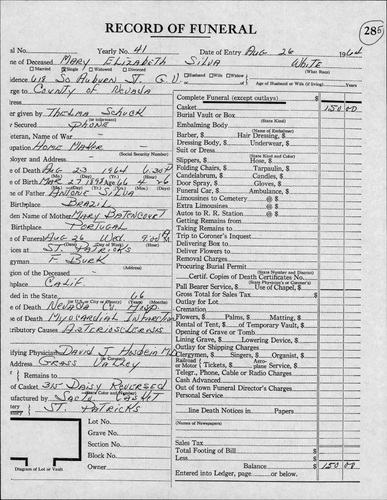 RECORD OF FUNERAL
285
al No. Yearly No. 41 Date of Entry Aug 26 1964
e of Deceased Mary Elizabeth Silva White
Married Single Widowed Divorced (What Race)
idence 618 So Auburn St. G.V. Husband Wife Widow of Age of Husband or Wife (if living) Years
rge to County of Nevada
ress
er given by Thelma Schuck
(or informant)
r Secured Phone
eteran, Name of War
upation Home Maker
(Social Security Number)
ployer and Address
e of Death Aug 23 1964 6:30
(Mo.) (Day) (Yr.) (Hour)
e of Birth Mar 27 1898 Age 66 4 26
(Mo.) (Day) (Yr.) (Yrs.) (Mos.) (Days)
e of Father Antone Silva
Birthplace Brazil
den Name of Mother Mary Batencourt
Birthplace Portugal
e of Funeral Aug 26 Wed. 9:00
(Date) (Day of Week) (Hour)
ices at St. Patricks
gyman F. Burk
(Address)
gion of the Deceased
hplace Calif
ded in the State 66
(Years) (Months)
e of Death Nevada Co Hosp
e of Death Myocardial Infarction
tributory Causes Arteriosclerosis
ifying Physician David Hostein M.D.
Address Grass Valley
r Remains to
of Casket 315 Daisy Reversed
ufactured by Sacto. Casket
tery St. Patricks
Lot No.
Grave No.
Section No.
Block No.
Owner
Diagram of Lot or Vault
Complete Funeral (except outlays) $
Casket 150 00
Burial Vault or Box
(State Kind)
Embalming Body
(Name of Embalmer)
Barber, $ Hair Dressing, $
Dressing Body, $ Underwear, $
Suit or Dress
(State Kind or Color)
Slippers, $ Hose, $
Folding Chairs, $ Tarpaulin, $
Candelabrum, $ Candles, $
Door Spray, $ Gloves, $
Funeral Car, $ Ambulance $
Limousines to Cemetery @ $
Extra Limousines @ $
Autos to R. R. Station @ $
Getting Remains from
Taking Remains to
Trip to Coroner's Inquest
Delivering Box to
Deliver Flowers to
Removal Charges
Procuring Burial Permit
(State Number and District)
Certif. Copies of Death Certificates No.
(State Physician's or Coroner's)
Pall Bearer Service, $ Use of Chapel, $
Gross Total for Sales Tax $
Outlay for Lot
Cremation
Flowers, $ Palms, $ Matting, $
Rental of Tent, $ of Temporary Vault, $
Opening of Grave or Tomb
Lining Grave, $ Lowering Device, $
Outlay for Shipping Charges
Clergymen, $ Singers, $ Organist, $
Railroad or Motor Tickets, $ Aeroplane Service, $
Telegr., Phone, Cable or Radio Charges
Cash Advanced
Out of town Funeral Director's Charges
Personal Service
line Death Notices in Papers
(Names of Newspapers)
Sales Tax
Total Footing of Bill $
Less
Balance $ 150 00
Entered into Ledger, page or below.